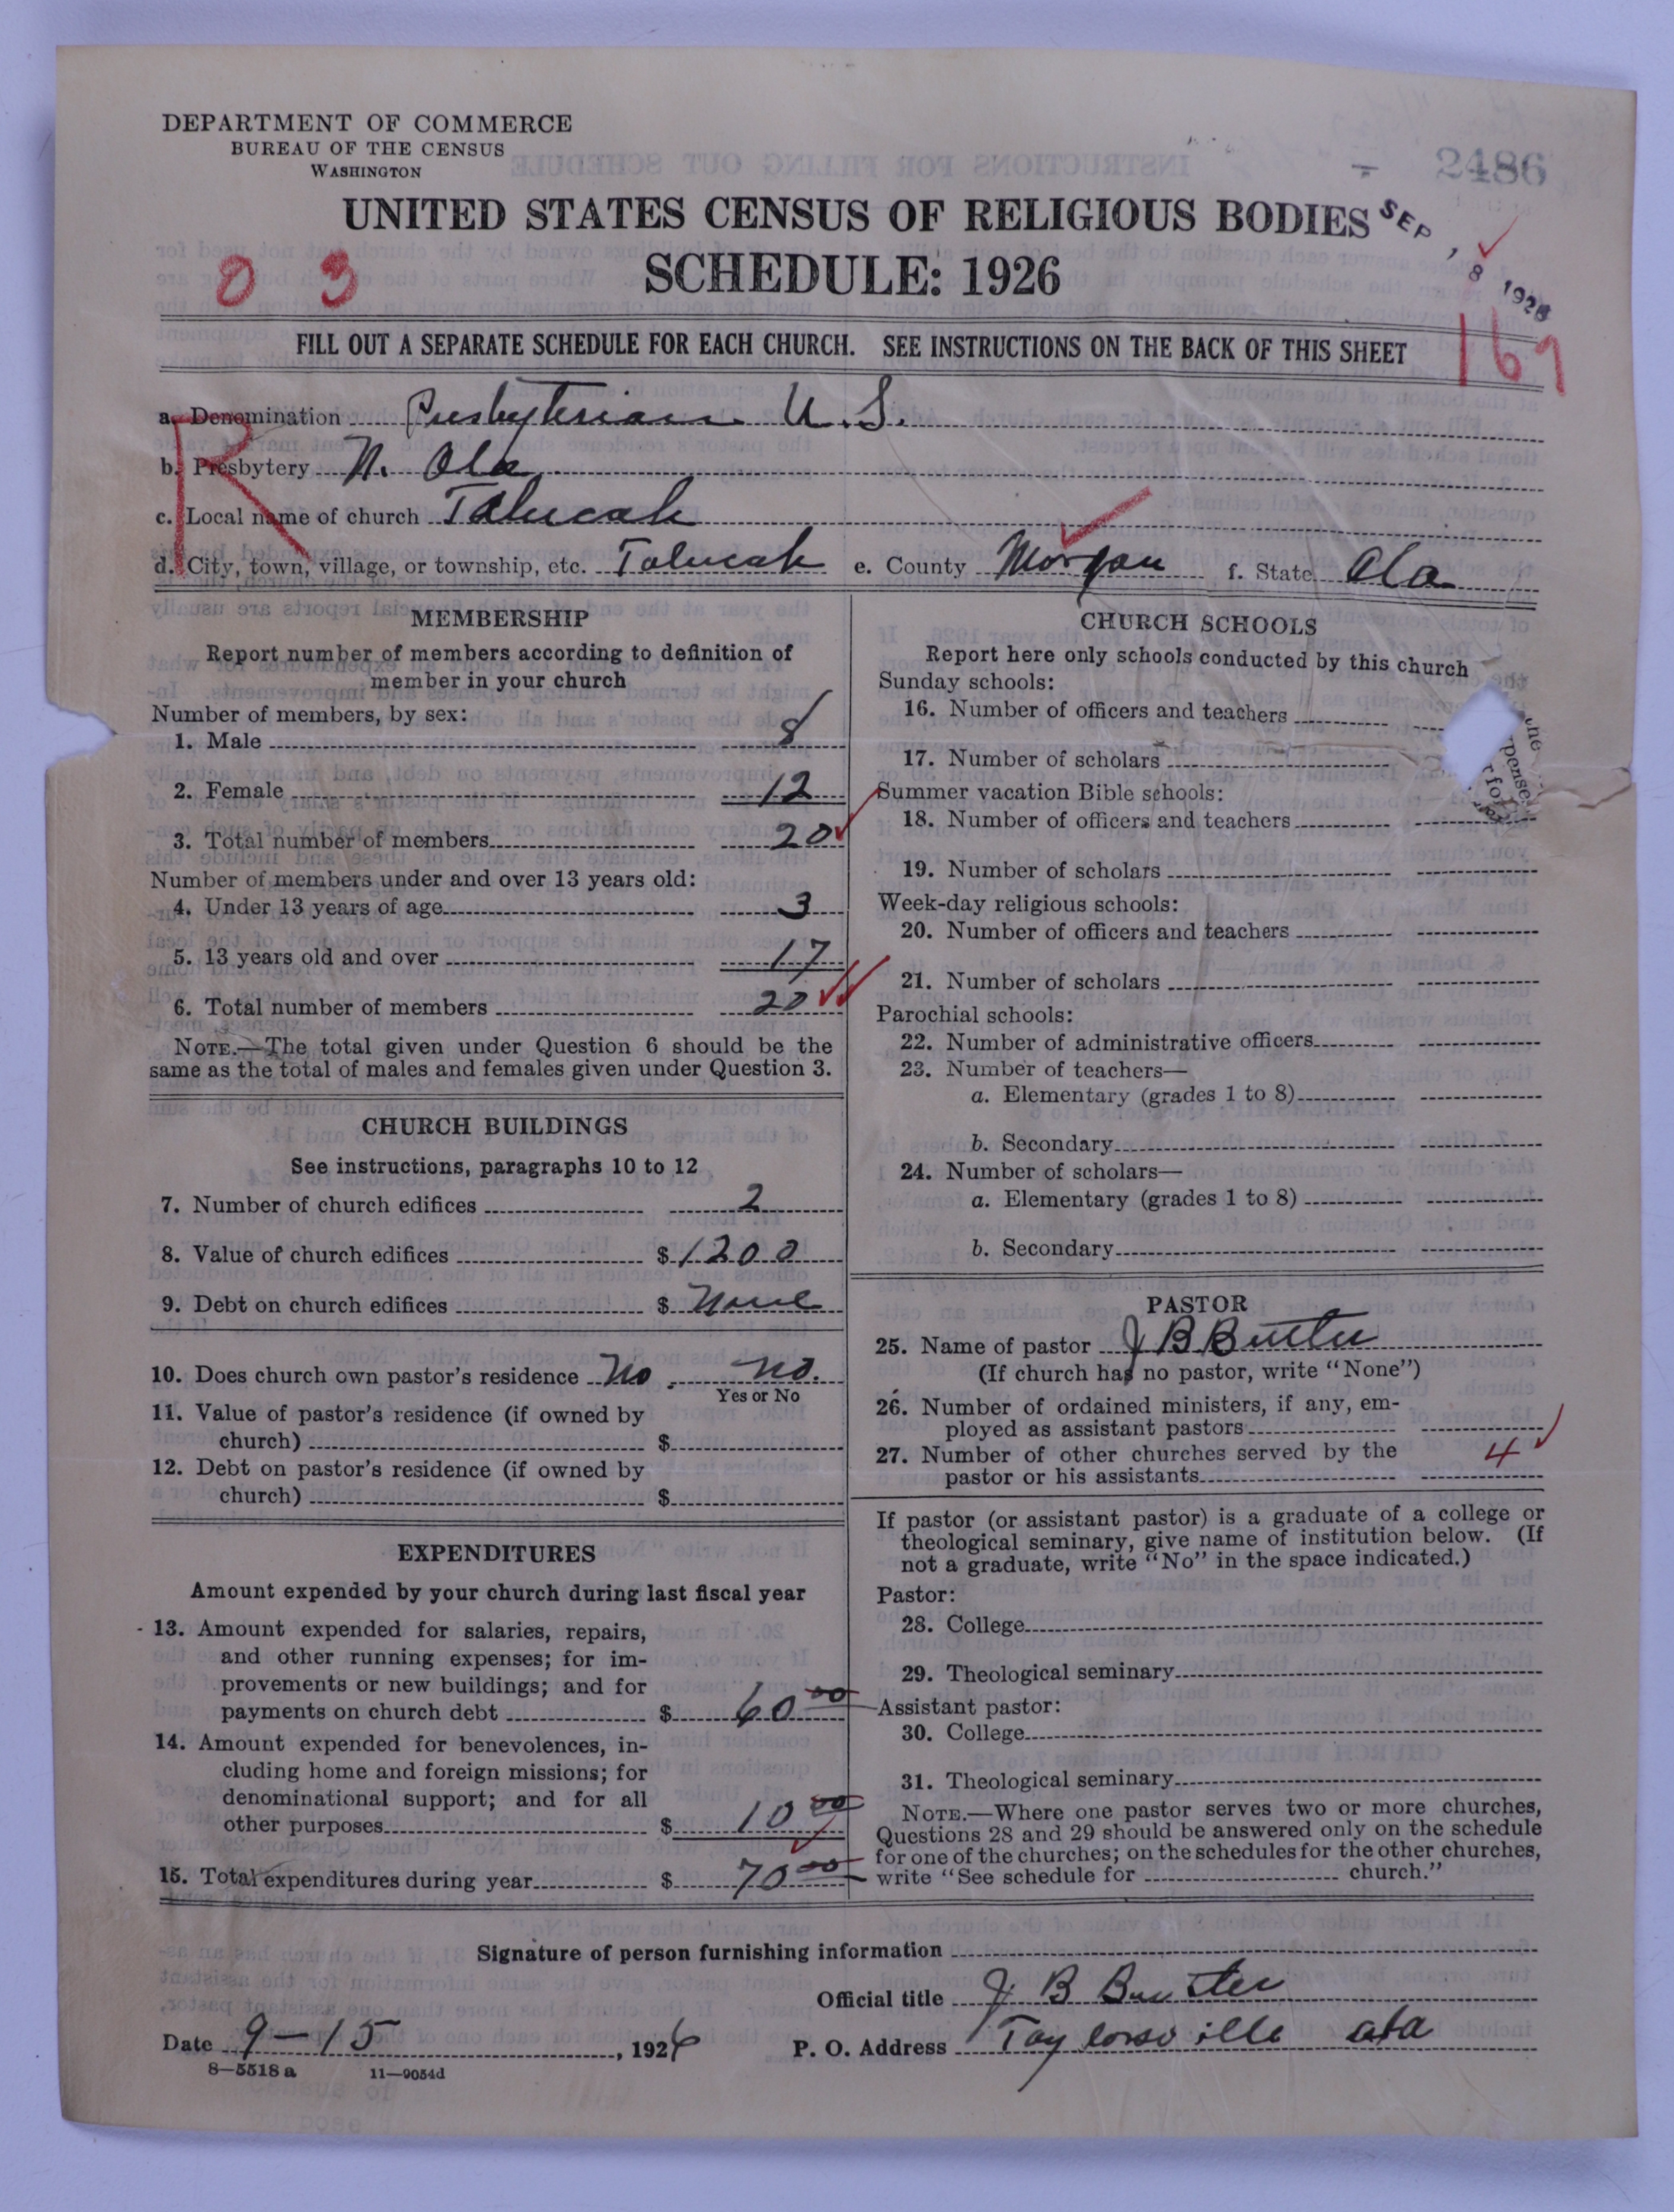 DEPARTMENT OF COMMERCE
BUREAU OF THE CENSUS
WASHINGTON
2486
UNITED STATES CENSUS OF RELIGIOUS BODIES
SEP 18 1926
SCHEDULE: 1926
0 3
167
FILL OUT A SEPARATE SCHEDULE FOR EACH CHURCH. SEE INSTRUCTIONS ON THE BACK OF THIS SHEET
R
a. Denomination Presbyterian U.S.
b. Presbytery N. Ala
c. Local name of church Talucah
d. City, town, village, or township, etc. Talucah e. County Morgan f. State Ala
MEMBERSHIP
Report number of members according to definition of
member in your church
Number of members, by sex:
1. Male 8
2. Female 12
3. Total number of members 20
Number of members under and over 13 years old:
4. Under 13 years of age 3
5. 13 years old and over 17
6. Total number of members 20
NOTE.—The total given under Question 6 should be the
same as the total of males and females given under Question 3.
CHURCH BUILDINGS
See instructions, paragraphs 10 to 12
7. Number of church edifices 2
8. Value of church edifices $1200
9. Debt on church edifices $ None
10. Does church own pastor's residence No. No.
Yes or No
11. Value of pastor's residence (if owned by
church) $
12. Debt on pastor's residence (if owned by
church) $
EXPENDITURES
Amount expended by your church during last fiscal year
13. Amount expended for salaries, repairs,
and other running expenses; for im-
provements or new buildings; and for
payments on church debt $ 60 00
14. Amount expended for benevolences, in-
cluding home and foreign missions; for
denominational support; and for all
other purposes $ 10 00
15. Total expenditures during year $ 70 00
CHURCH SCHOOLS
Report here only schools conducted by this church
Sunday schools:
16. Number of officers and teachers
17. Number of scholars
Summer vacation Bible schools:
18. Number of officers and teachers
19. Number of scholars
Week-day religious schools:
20. Number of officers and teachers
21. Number of scholars
Parochial schools:
22. Number of administrative officers
23. Number of teachers—
a. Elementary (grades 1 to 8)
b. Secondary
24. Number of scholars—
a. Elementary (grades 1 to 8)
b. Secondary
PASTOR
25. Name of pastor J B
(If church has no pastor, write "None")
26. Number of ordained ministers, if any, em-
ployed as assistant pastors
27. Number of other churches served by the
pastor or his assistants 4
If pastor (or assistant pastor) is a graduate of a college or
theological seminary, give name of institution below. (If
not a graduate, write "No" in the space indicated.)
Pastor:
28. College
29. Theological seminary
Assistant pastor:
30. College
31. Theological seminary
NOTE.—Where one pastor serves two or more churches,
Questions 28 and 29 should be answered only on the schedule
for one of the churches; on the schedules for the other churches,
write "See schedule for church."
Signature of person furnishing information
Official title J B
Date 9-15, 1926 P. O. Address Taylorsville ala
8—5518 a 11—9054d